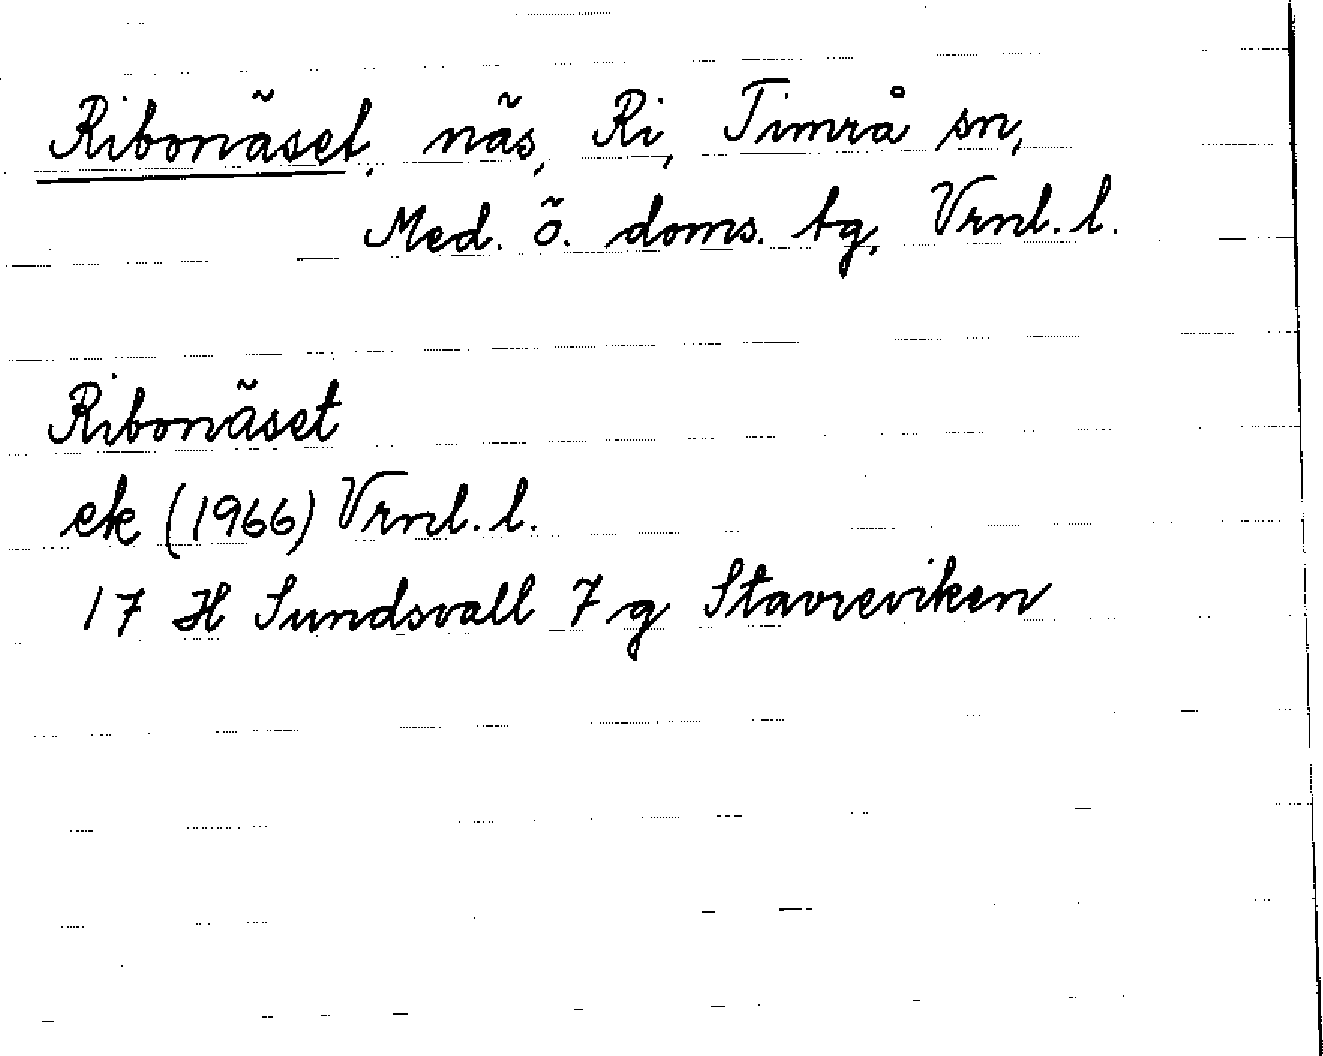 Ribonäset, näs, Ri, Timrå sn,
Med. ö. doms. tg, Vrnl. l.
Ribonäset
ek (1966) Vrnl. l.
17 H Sundsvall 7 g Stavreviken